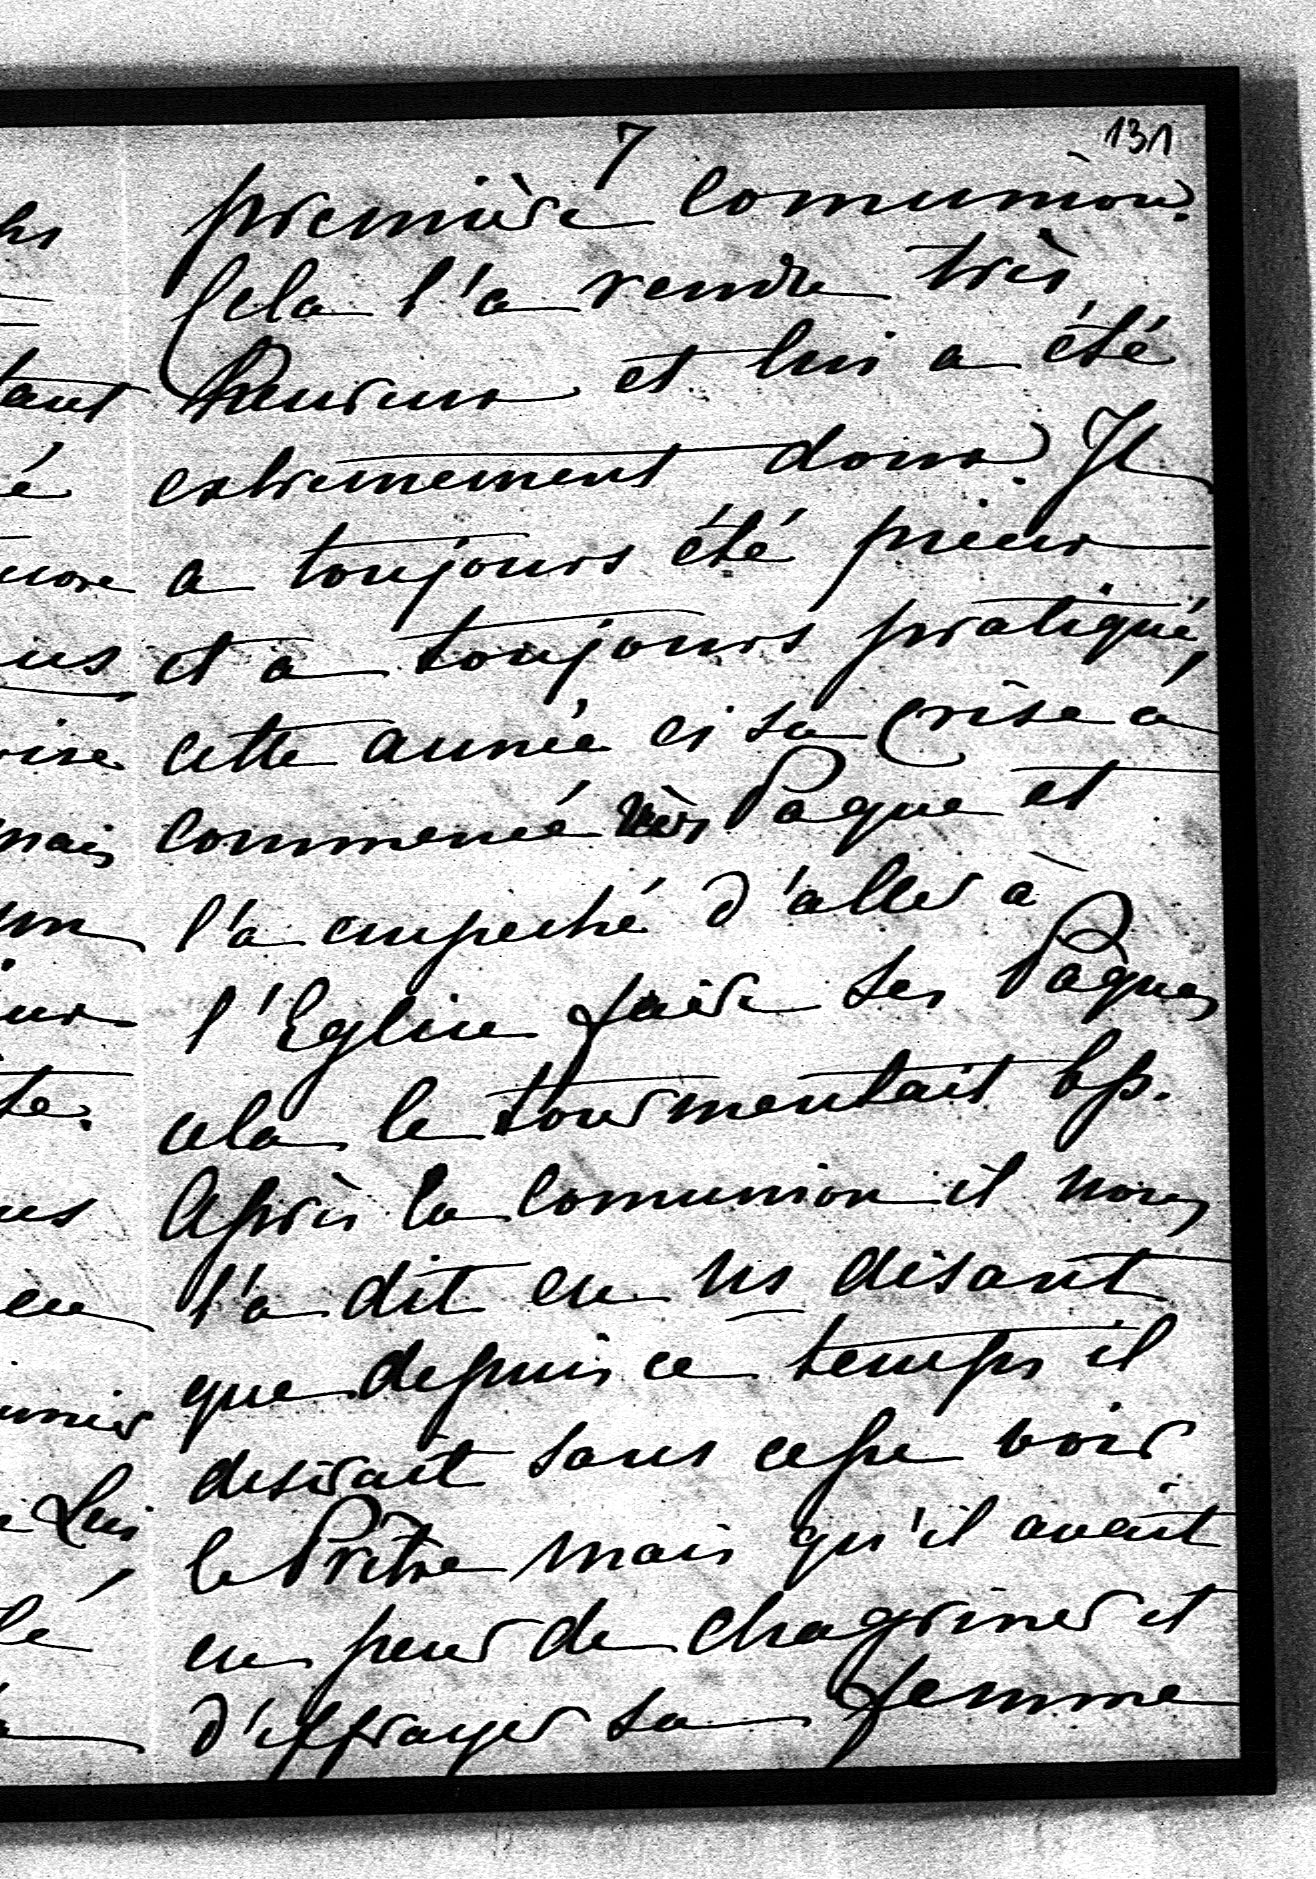 7
131
première comunion.
Cela l'a rendu très
heureux et lui a été
extremement doux. Il
a toujours été pieux
et a toujours pratiqué,
cette année ci sa crise a
commencé vers Paque et
l'a empeché d'aller à
l'Eglise faire ses Paques
cela le tourmentait bp.
Après la comunion il nous
l'a dit en ns disant
que depuis ce temps il
desirait sans cesse voir
le Prêtre mais qu'il avait
eu peur de chagriner et
d'effrayer sa femme